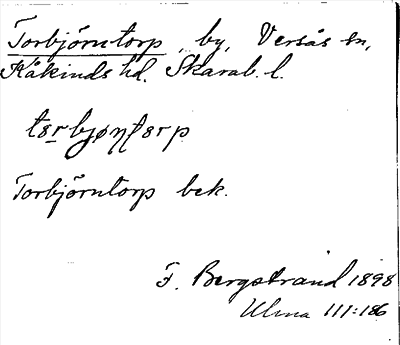 Torbjörntorp, by, Versås sn,
Kåkinds hd. Skarab. l.
Torbjörntorp bek.
F. Bergstrand 1898
Ulma 111:186